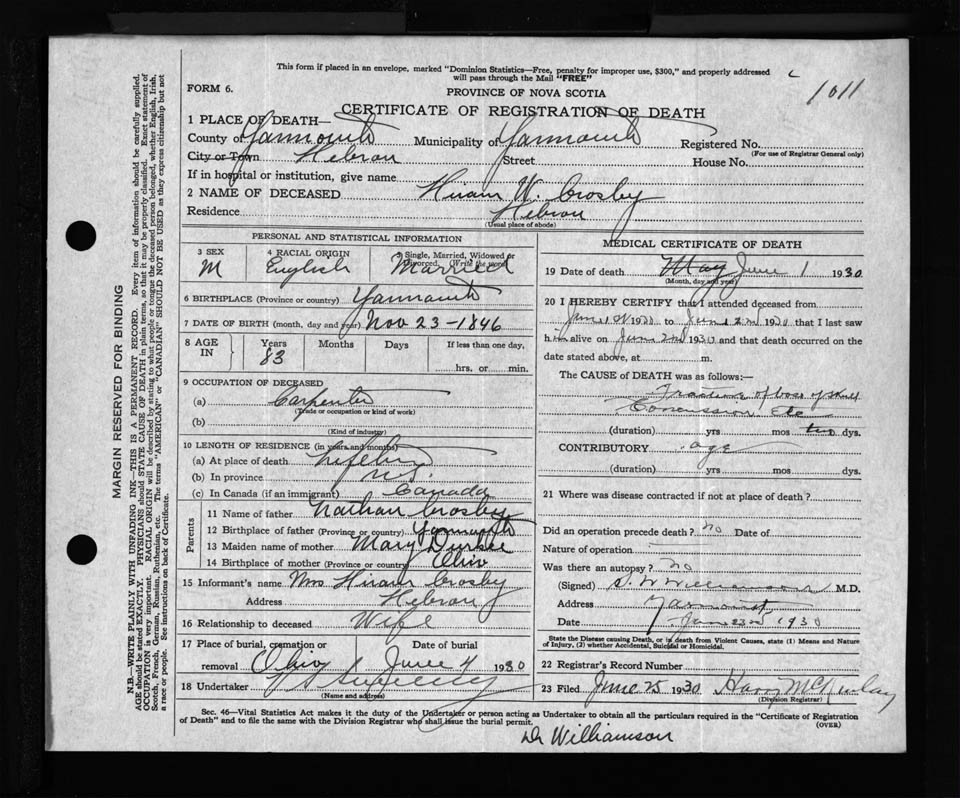 This form if placed in an envelope, marked "Dominion Statistics—Free, penalty for improper use, $300," and properly addressed
will pass through the Mail "FREE"
1011
FORM 6.
PROVINCE OF NOVA SCOTIA
CERTIFICATE OF REGISTRATION OF DEATH
1 PLACE OF DEATH—
County of Yarmouth Municipality of Yarmouth Registered No.
(For use of Registrar General only)
City or Town Hebron Street House No.
If in hospital or institution, give name
2 NAME OF DECEASED Hiram W. Crosby
Residence Hebron
(Usual place of abode)
PERSONAL AND STATISTICAL INFORMATION
3 SEX M
4 RACIAL ORIGIN English
5 Single, Married, Widowed or Divorced. (Write the word) Married
6 BIRTHPLACE (Province or country) Yarmouth
7 DATE OF BIRTH (month, day and year) Nov 23-1846
8 AGE IN Years 83 Months Days If less than one day, hrs. or min.
9 OCCUPATION OF DECEASED
(a) Carpenter
(Trade or occupation or kind of work)
(b)
(Kind of industry)
10 LENGTH OF RESIDENCE (in years and months)
(a) At place of death Lifetime
(b) In province
(c) In Canada (if an immigrant) Canada
Parents
11 Name of father Nathan Crosby
12 Birthplace of father (Province or country) Yarmouth
13 Maiden name of mother Mary Durkee
14 Birthplace of mother (Province or country) Ohio
15 Informant's name Mrs Hiram Crosby
Address Hebron
16 Relationship to deceased Wife
17 Place of burial, cremation or removal Ohio Date of burial June 4 1930
18 Undertaker
(Name and address)
MEDICAL CERTIFICATE OF DEATH
19 Date of death May June 1 1930
(Month, day and year)
20 I HEREBY CERTIFY that I attended deceased from
June 1st 1930 to June 2nd 1930 that I last saw
him alive on June 2nd 1930 and that death occurred on the
date stated above, at m.
The CAUSE of DEATH was as follows:—
Fracture of base of skull
Concussion Etc
(duration) yrs mos two dys.
CONTRIBUTORY age
(duration) yrs mos dys.
21 Where was disease contracted if not at place of death?
Did an operation precede death? no Date of
Nature of operation
Was there an autopsy? no
(Signed) S. W Williamson M.D.
Address Yarmouth
Date June 23rd 1930
State the Disease causing Death, or in death from Violent Causes, state (1) Means and Nature
of Injury, (2) whether Accidental, Suicidal or Homicidal.
22 Registrar's Record Number
23 Filed June 25 1930 Harry
(Division Registrar)
Sec. 46—Vital Statistics Act makes it the duty of the Undertaker or person acting as Undertaker to obtain all the particulars required in the "Certificate of Registration
of Death" and to file the same with the Division Registrar who shall issue the burial permit. (OVER)
Dr Williamson
MARGIN RESERVED FOR BINDING
N.B.—WRITE PLAINLY WITH UNFADING INK—THIS IS A PERMANENT RECORD. Every item of information should be carefully supplied.
AGE should be stated EXACTLY. PHYSICIANS should STATE CAUSE OF DEATH in plain terms, so that it may be properly classified. Exact statement of
OCCUPATION is very important. RACIAL ORIGIN will be described by stating to what people or tongue the deceased person belonged, whether English, Irish,
Scotch, French, German, Russian, Ruthenian, etc. The terms "AMERICAN" or "CANADIAN" SHOULD NOT BE USED as they express citizenship but not
a race or people. See instructions on back of Certificate.